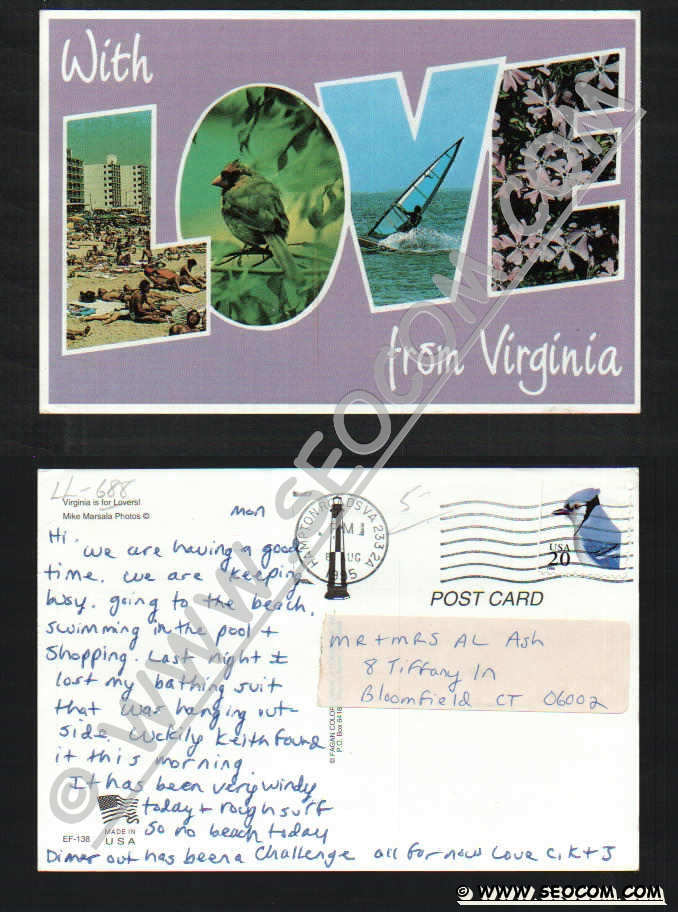 With
LOVE
from Virginia
LL-688
Virginia is for Lovers!
Mike Marsala Photos ©
Mon
Hi,
We are having a good
time. We are keeping
busy. going to the beach,
swimming in the pool +
Shopping. Last night I
lost my bathing suit
that was hanging out-
side. Luckily Keith found
it this morning
It has been very windy
today + rough surf
So no beach today
Dinner out has been a Challenge all for now Love C, K + J
MADE IN
USA
EF-138
HAMPTON RDS VA 233 2A
PM
AUG
1995
5-
USA
20
POST CARD
MR + MRS AL Ash
8 Tiffany ln
Bloomfield CT 06002
© FAGAN COLOR
P.O. Box 6418
© WWW.SEOCOM.COM
© WWW.SEOCOM.COM